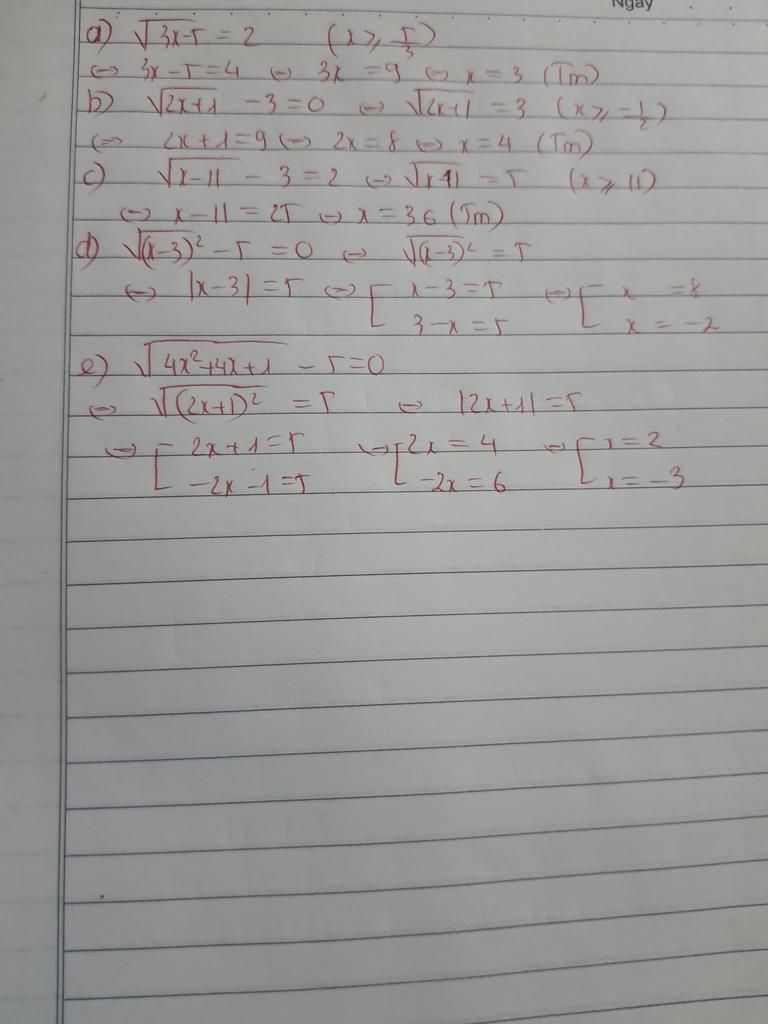 Ngày
a) √(3x-5) = 2 (x ⩾ 5/3)
⇔ 3x-5=4 ⇔ 3x =9 ⇔ x = 3 (Tm)
b) √(2x+1) -3=0 ⇔ √(2x+1) =3 (x ⩾ -1/2)
⇔ 2x+1=9 ⇔ 2x=8 ⇔ x=4 (Tm)
c) √(x-11) - 3=2 ⇔ √(x-11) = 5 (x ⩾ 11)
⇔ x-11 = 25 ⇔ x = 36 (Tm)
d) √(x-3)² - 5 = 0 ⇔ √(x-3)² = 5
⇔ |x-3| = 5 ⇔ [ x-3=5 ⇔ [ x =8
3-x=5 x = -2
e) √(4x²+4x+1) - 5=0
⇔ √((2x+1)²) = 5 ⇔ |2x+1| =5
⇔ [ 2x+1=5 ⇔ [ 2x = 4 ⇔ [ x=2
-2x-1=5 -2x = 6 x= -3